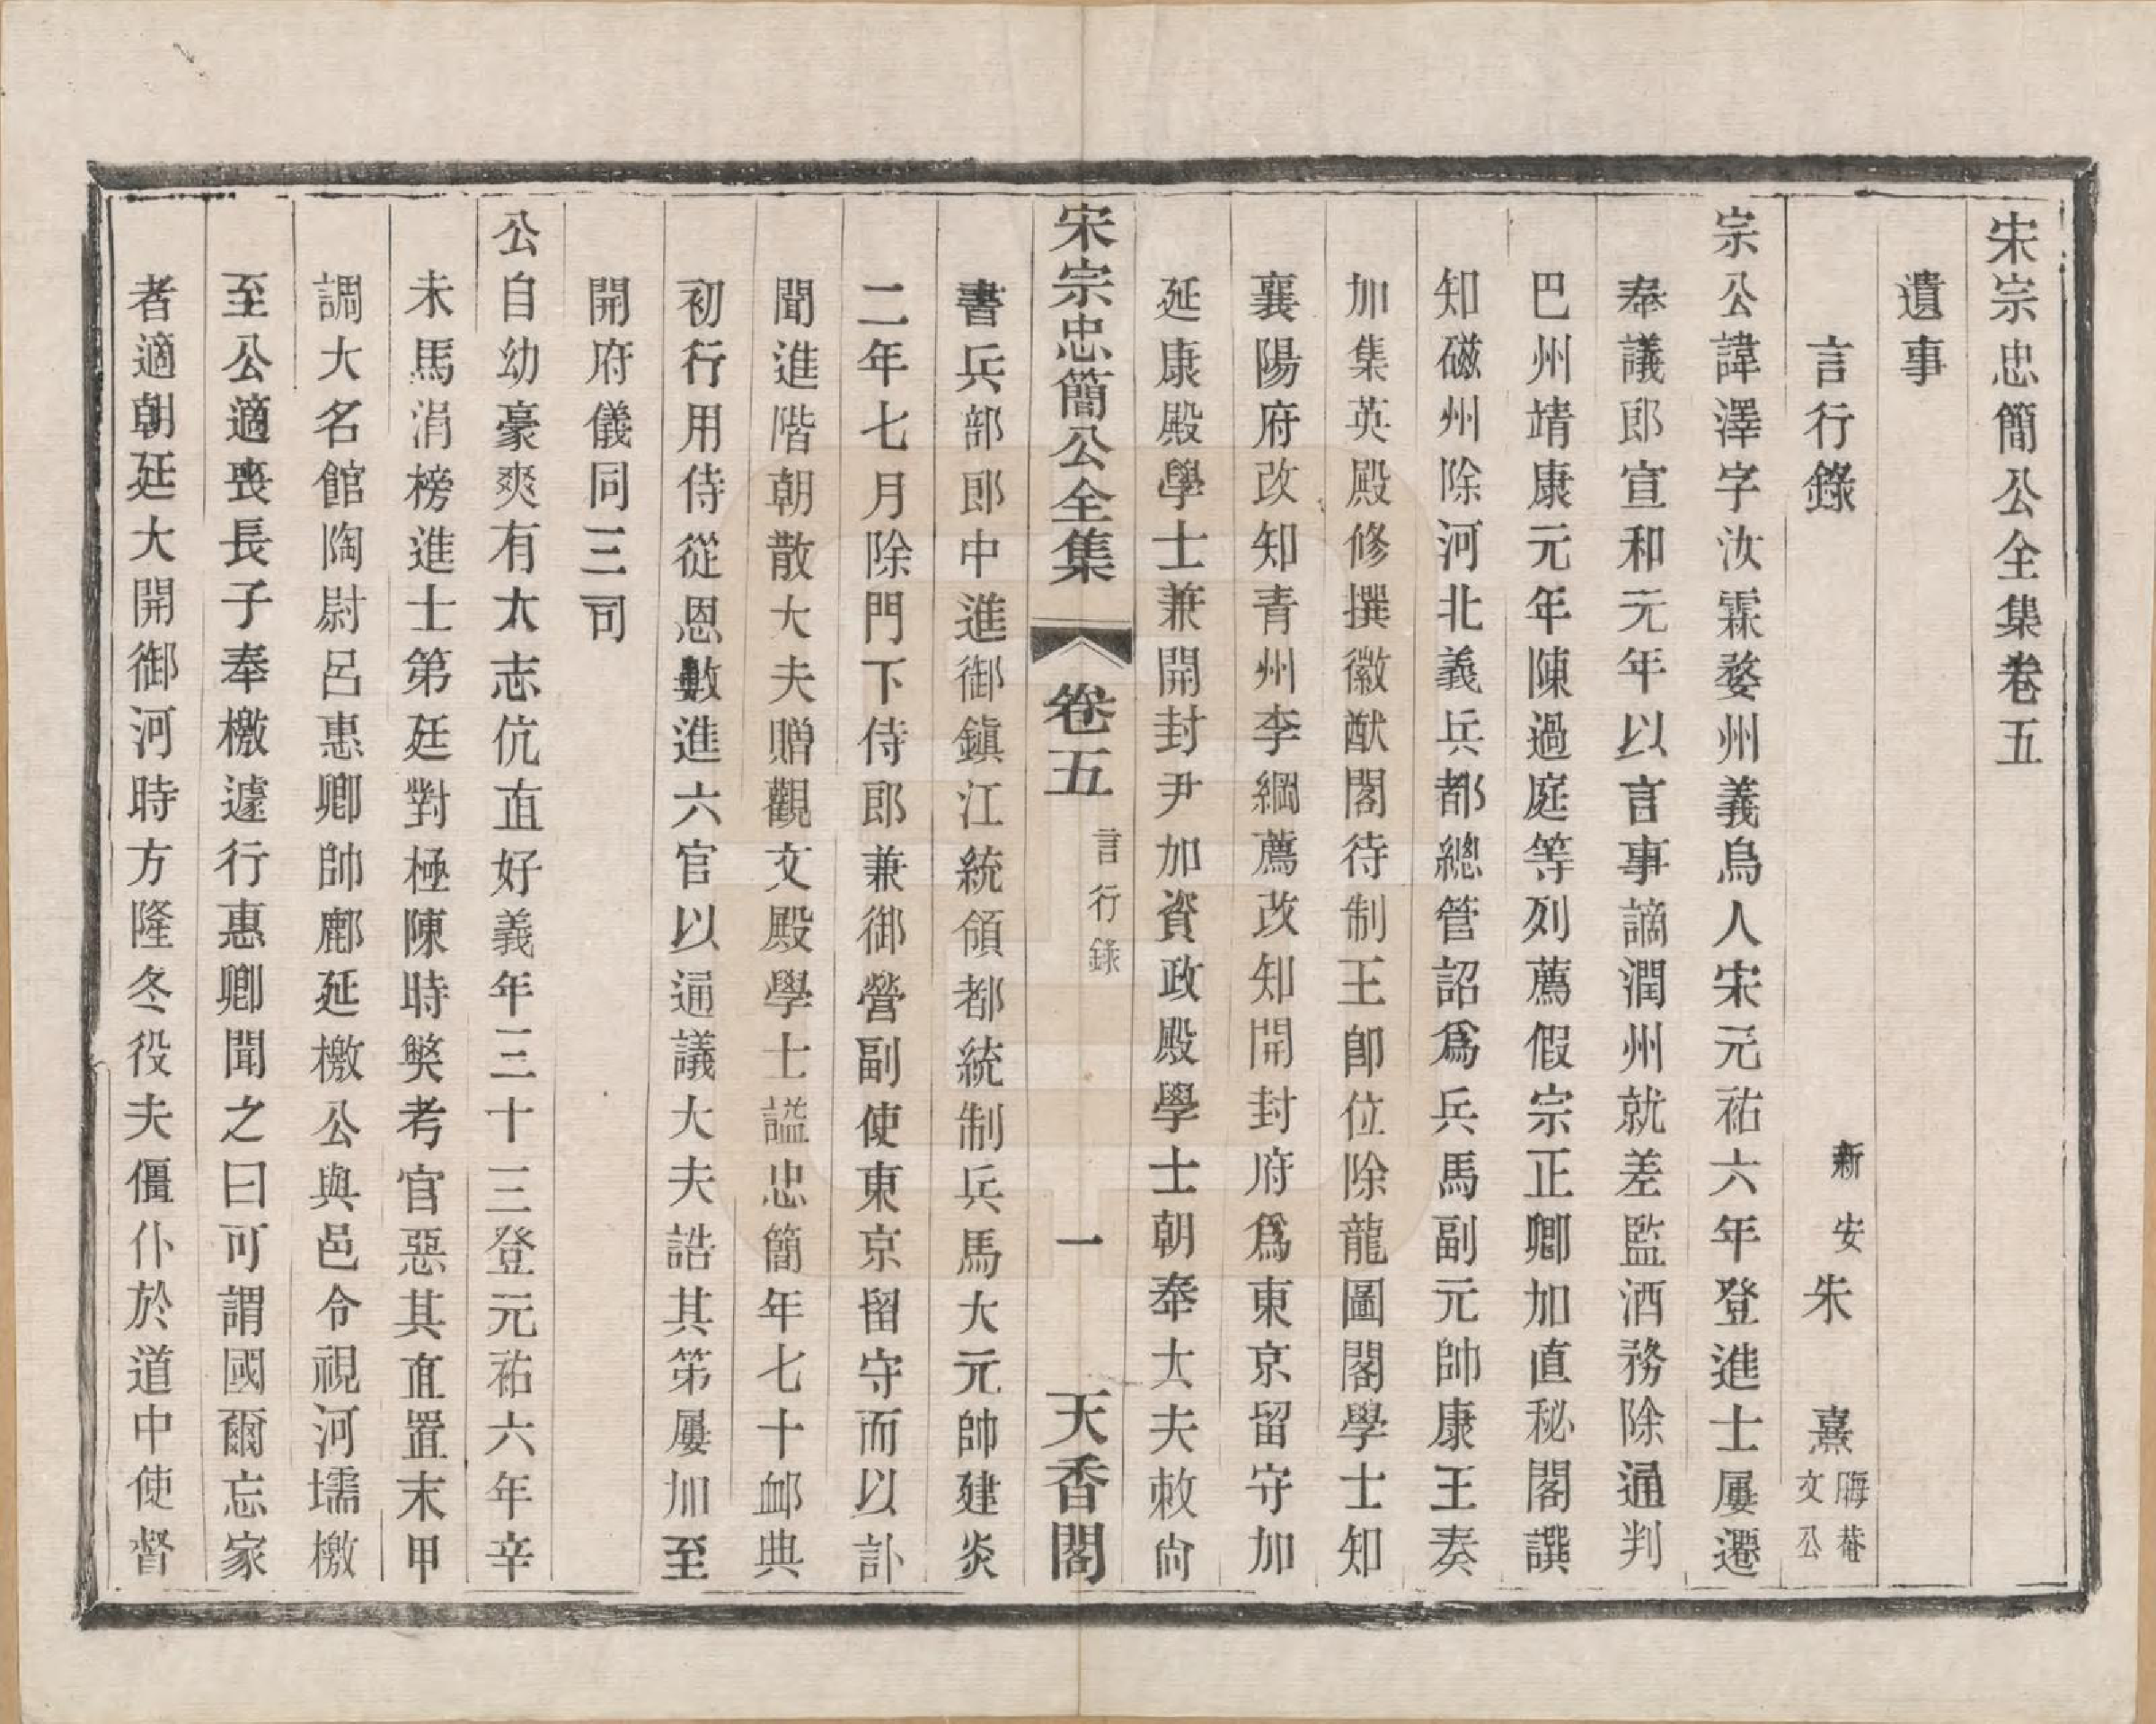 宋宗忠簡公全集卷五
遺事
言行錄
新安朱熹晦菴文公
宗公諱澤字汝霖婺州義烏人宋元祐六年登進士屢遷
奉議郎宣和元年以言事謫潤州就差監酒務除通判
巴州靖康元年陳過庭等列薦假宗正卿加直秘閣譔
知磁州除河北義兵都總管詔爲兵馬副元帥康王奏
加集英殿修撰徽猷閣待制王卽位除龍圖閣學士知
襄陽府改知青州李綱薦改知開封府爲東京留守加
延康殿學士兼開封尹加資政殿學士朝奉大夫敕尙
宋宗忠簡公全集
卷五
言行錄
一
天香閣
書兵部郎中進御鎭江統領都統制兵馬大元帥建炎
二年七月除門下侍郎兼御營副使東京留守而以訃
聞進階朝散大夫贈觀文殿學士謚忠簡年七十卹典
初行用侍從恩數進六官以通議大夫誥其第屢加至
開府儀同三司
公自幼豪爽有大志伉直好義年三十三登元祐六年辛
未馬涓榜進士第廷對極陳時獘考官惡其直置末甲
調大名館陶尉呂惠卿帥鄜延檄公與邑令視河壖檄
至公適喪長子奉檄遽行惠卿聞之曰可謂國爾忘家
者適朝廷大開御河時方隆冬役夫僵仆於道中使督